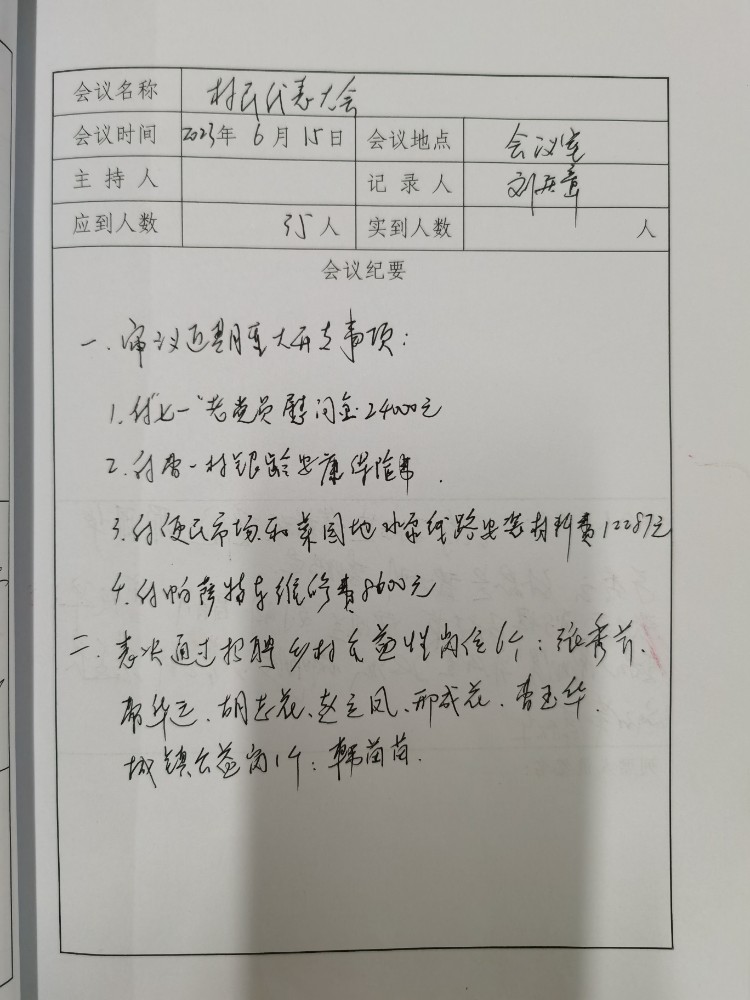 会议名称 村民代表大会
会议时间 2023年 6月 15日 会议地点 会议室
主持人 记录人 刘
应到人数 35人 实到人数 人
会议纪要
一、审议近期重大开支事项：
1.付"七一"老党员慰问金24000元
2.付 一村银龄安康保险费.
3.付便民市场和菜园地水泵线路安装材料费12287元
4.付帕萨特车维修费8600元
二、表决通过招聘乡村公益性岗位6个：张秀芹、
华云、胡志花、赵立凤、邢成花、曹玉华.
城镇公益岗1个：韩苗苗.